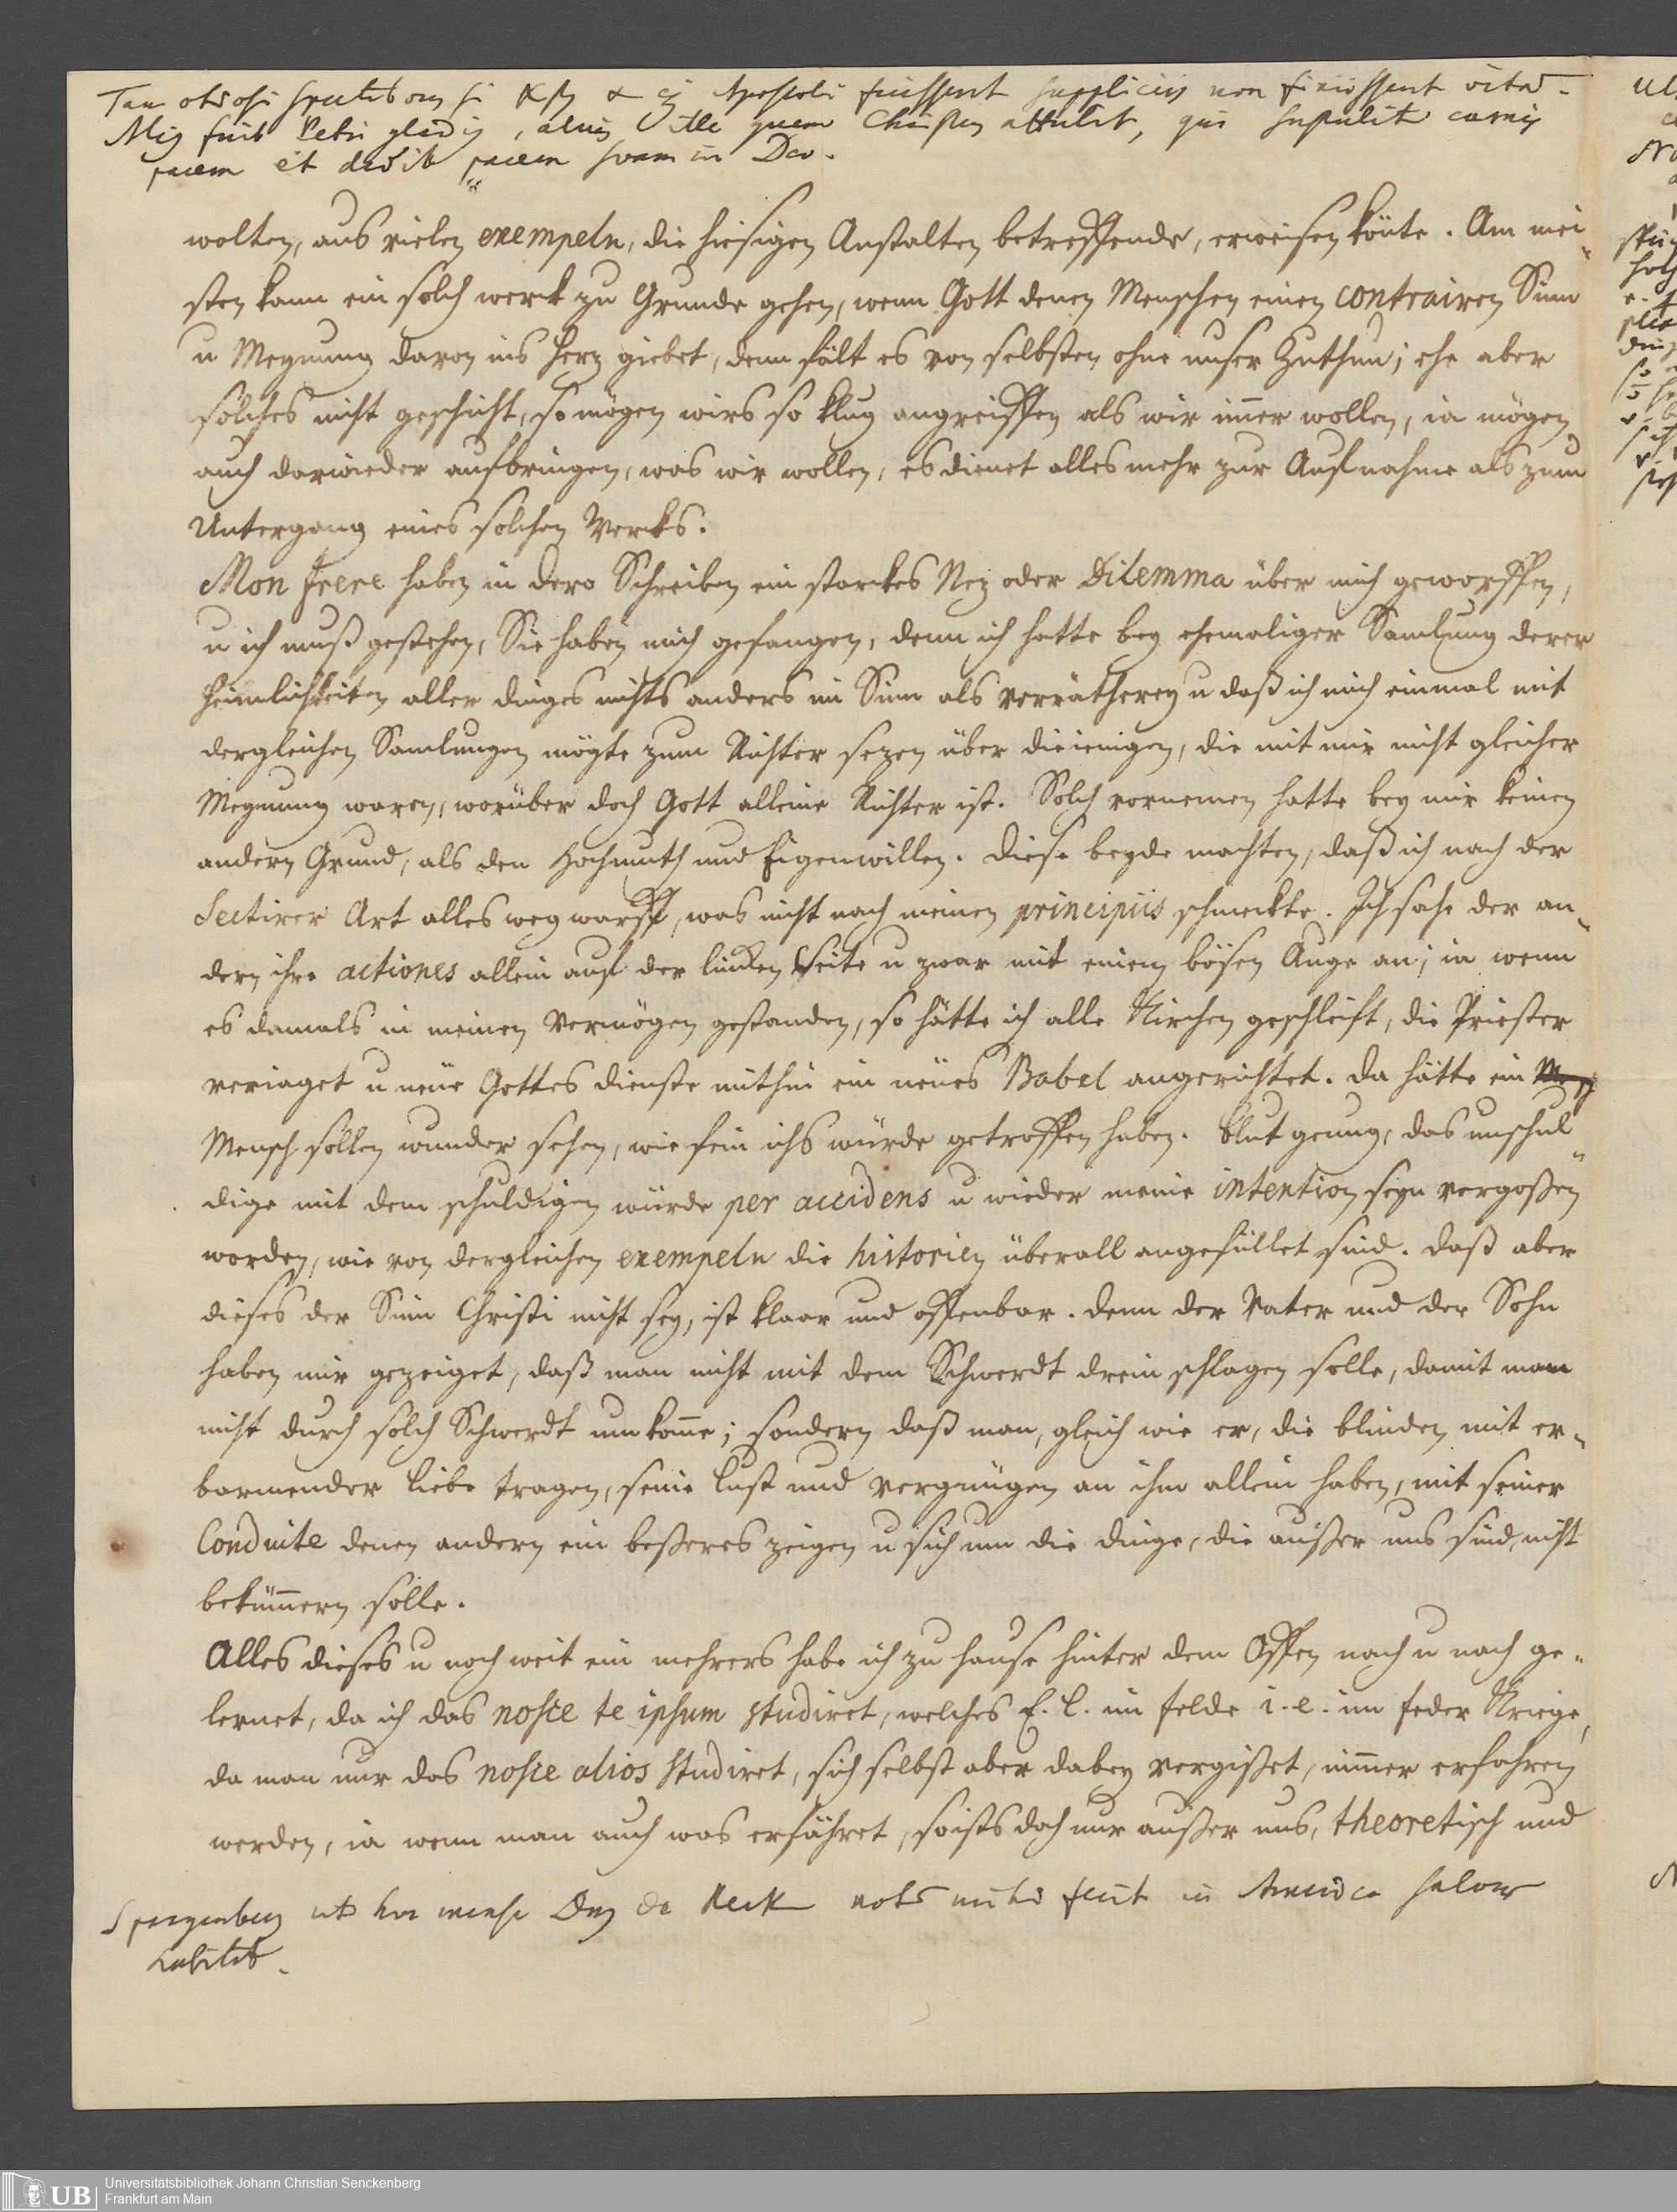 Tam otiosi spectatores si Xstus & ej Apostoli fuissent suppliciis non finiissent vitam.
Alius fuit Petri gladius, alius ille quem Christus attulit, qui sustulit carnis
pacem et dedit pacem suam in Deo.
wolten, aus vielen exempeln, die hiesigen Anstalten betreffende, erweisen könte. Am mei-
sten kann ein solch werck zu Grunde gehen, wenn Gott denen Menschen einen contrairen Sinn
u Meynung davon ins Herz giebet, denn fält es von selbsten ohne unser Zuthun; ehe aber
solches nicht geschicht, so mögen wirs so klug angreiffen als wir im̄er wollen, ia mögen
auch darwieder aufbringen, was wir wollen, es dienet alles mehr zur Aufnahme als zum
Untergang eines solchen Wercks.
Mon Frere haben in dero Schreiben ein starckes Nez oder Dilemma über mich geworffen,
u ich muß gestehen, Sie haben mich gefangen, denn ich hatte bey ehemaliger Samlung derer
Heimlichkeiten aller dinges nichts anders im Sinn als verrätherey u daß ich mich einmal mit
dergleichen Samlungen mögte zum Richter sezen über dieienigen, die mit mir nicht gleicher
Meynung waren, worüber doch Gott alleine Richter ist. Solch vornemen hatte bey mir keinen
andern Grund, als den Hochmuth und Eigenwillen. Diese beyde machten, daß ich nach der
Sectirer Art alles weg warff, was nicht nach meinen principiis schmeckte. Ich sahe der an-
dern ihre actiones allein auf der lincken Seite u zwar mit einem bösen Auge an; ia wenn
es damals in meinen Vermögen gestanden, so hätte ich alle Kirchen geschleift, die Priester
veriaget u neue Gottes dienste mithin ein neues Babel angerichtet. Da hätte ein
Mensch sollen wunder sehen, wie fein ichs würde getroffen haben. Blut genug, das unschul-
dige mit dem schuldigen würde per accidens u wieder meine intention seyn vergoßen
worden, wie von dergleichen exempeln die historien überall angefüllet sind. Daß aber
dieses der Sinn Christi nicht sey, ist klaar und offenbar. denn der Vater und der Sohn
haben mir gezeiget, daß man nicht mit dem Schwerdt drein schlagen solle, damit man
nicht durch solch Schwerdt umkom̄e; sondern daß man, gleich wie er, die blinden mit er-
barmender Liebe tragen, seine Lust und vergnügen an ihm allein haben, mit seiner
Conduite denen andern ein beßeres zeigen u sich um die dinge, die außer uns sind, nicht
beküm̄ern solle.
Alles dieses u noch weit ein mehrers habe ich zu Hause hinter dem Offen nach u nach ge-
lernet, da ich das nosce te ipsum studiret, welches E. L. im felde i.e. im feder Kriege,
da man nur das nosce alios studiret, sich selbst aber dabey vergißet, nim̄er erfahren
werden, ia wenn man auch was erfähret, so ists doch nur außer uns, theoretisch und
Spangenberg uti hoc mense de Reck mihi fecit in America